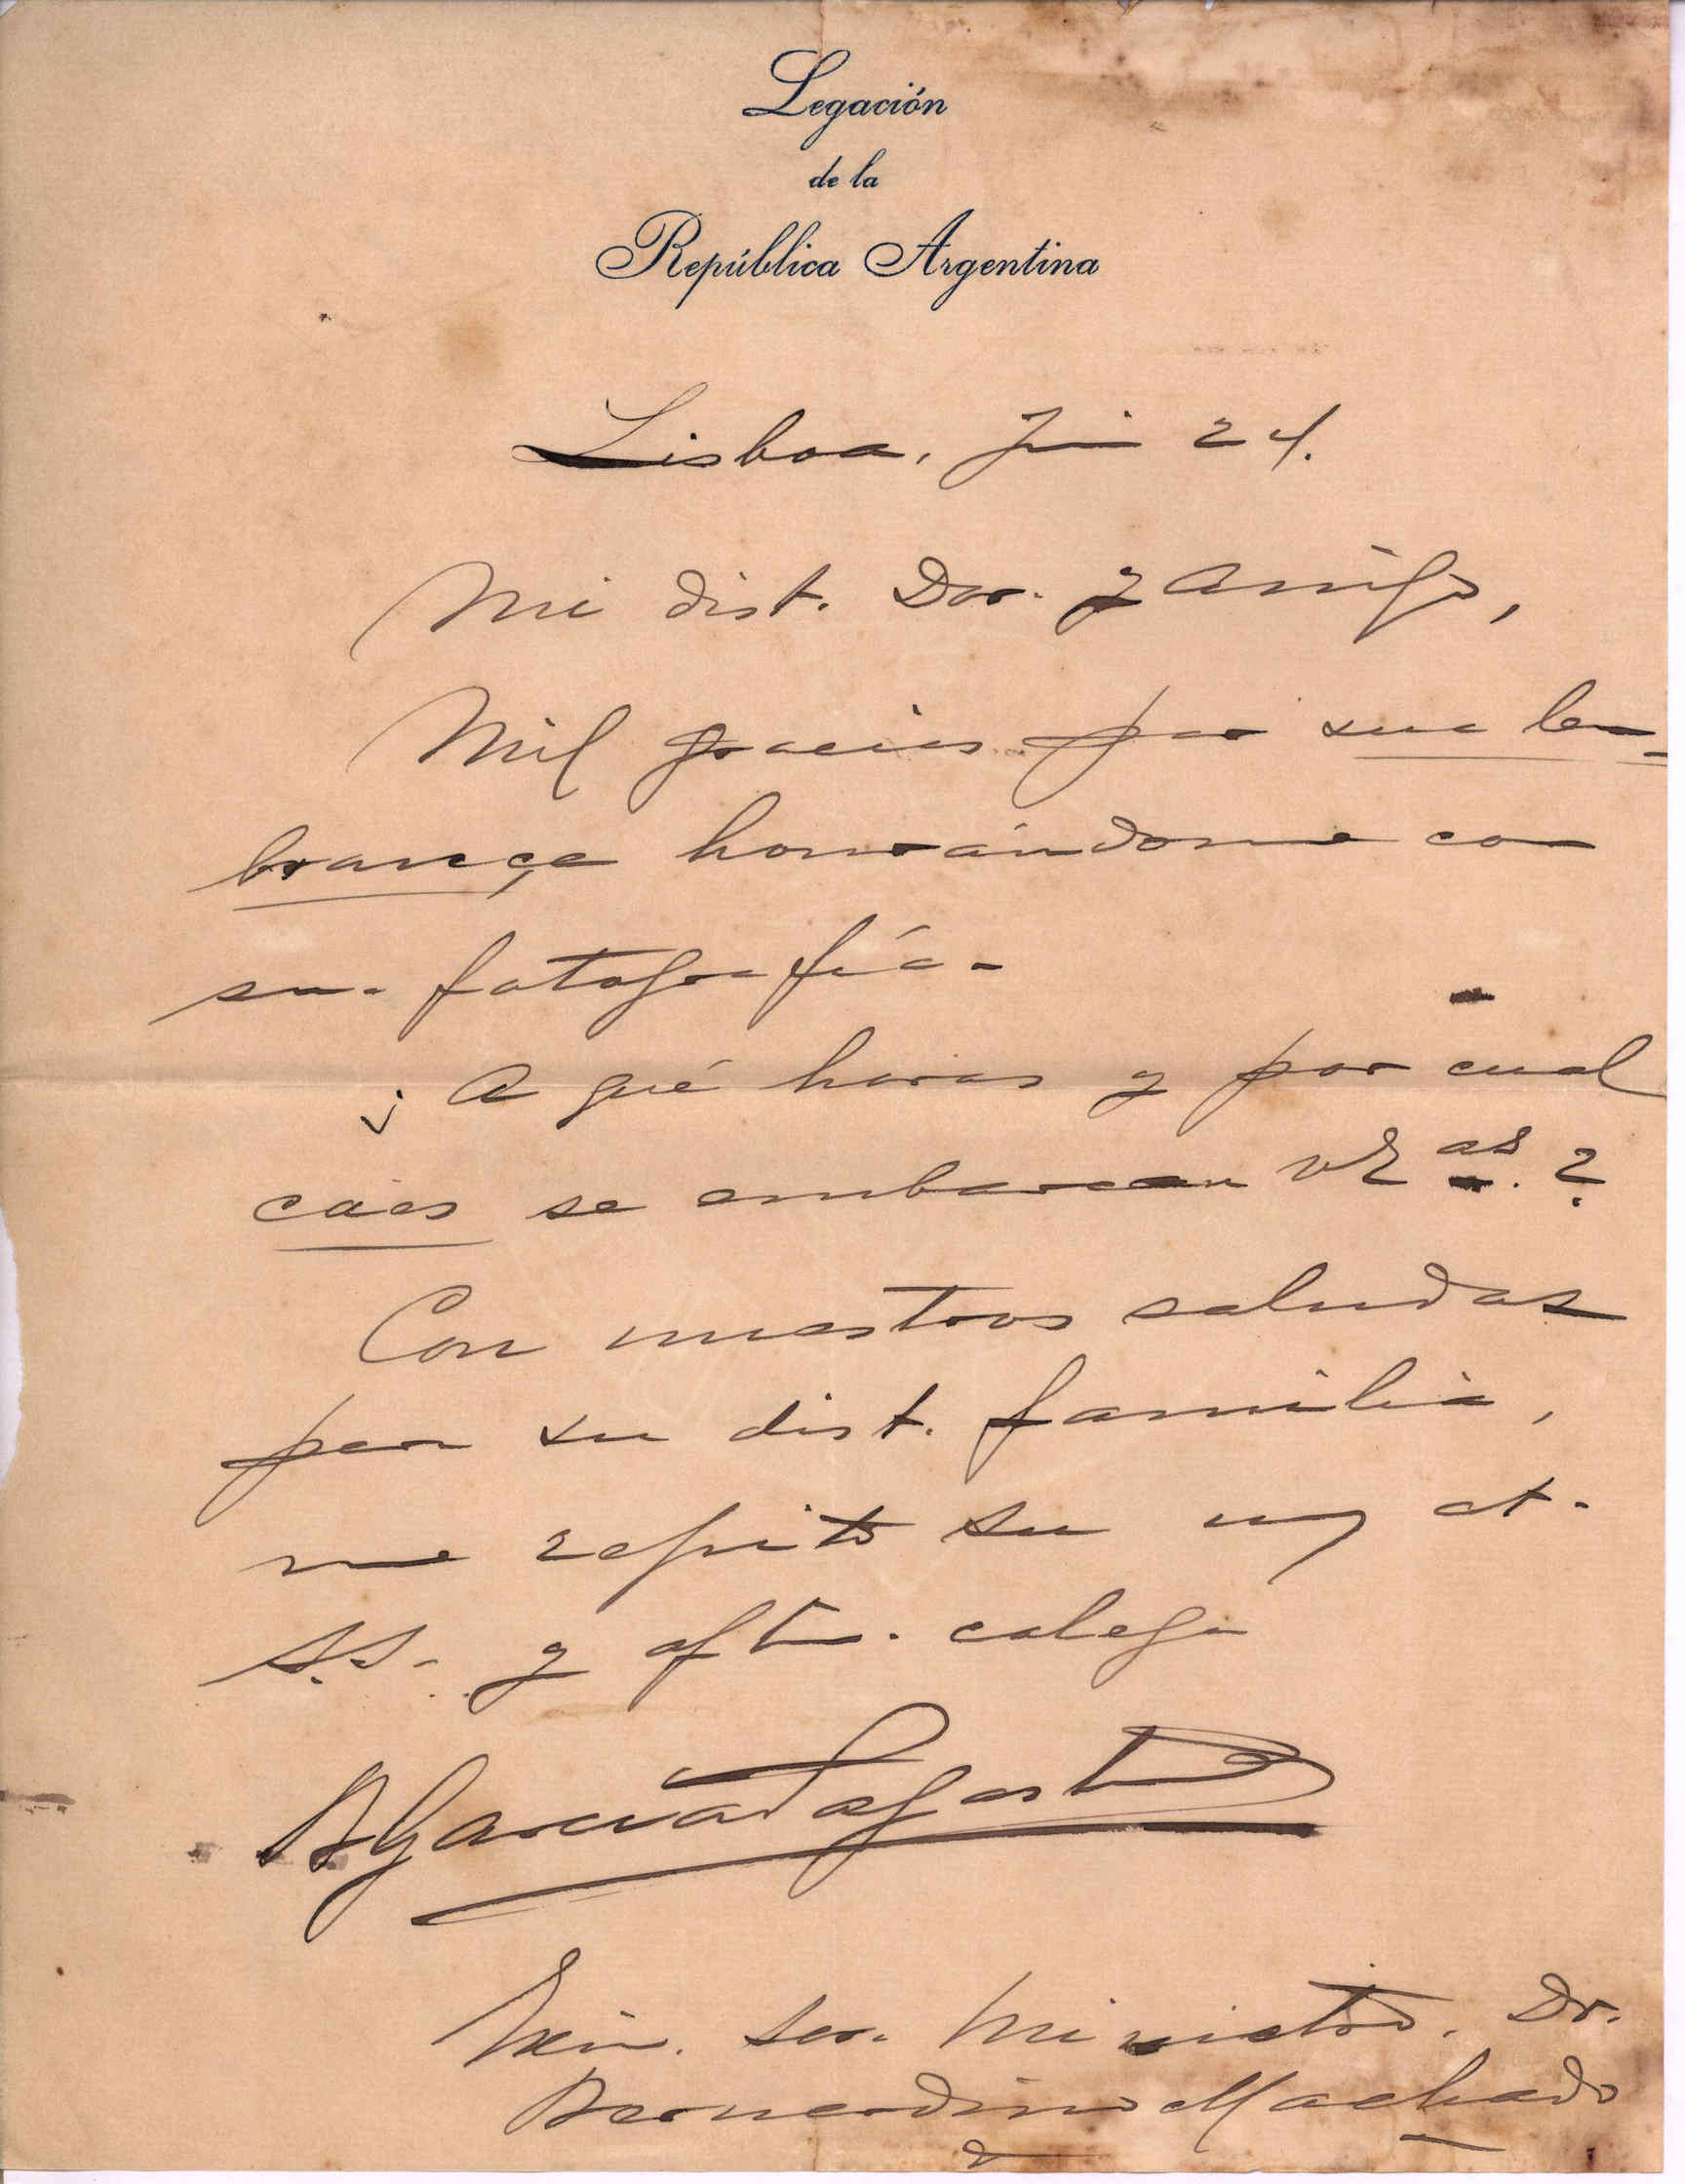 Legación
de la
República Argentina
Lisboa, 24.
Mi dist. Dor. y amigo,
Mil gracias por sua lem-
brança honrándome con
su fotografía.
¿A qué horas y por cual
cáes se embarcan VE as. ?
Con nuestros saludos
para su dist. familia,
me repito su at.
S.S. y afto. colega
Exm. Sor. Ministro. Dr.
Bernardino Machado